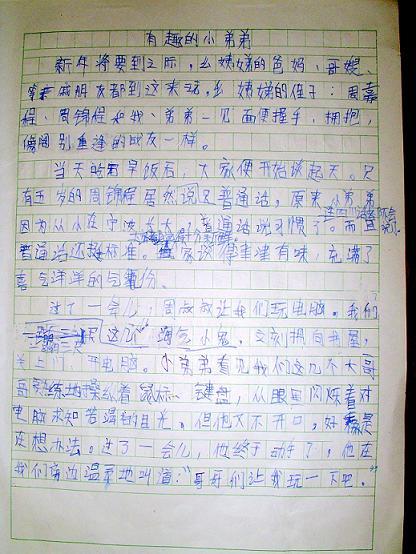 有趣的小弟弟
新年将要到之际，幺姨姊的爸妈、哥嫂、
亲戚朋友都到这来玩。幺姨姊的侄子：周嘉
程、周锦程和我、弟弟一见面便握手，拥抱，
像阔别重逢的战友一样。
当天的早饭后，大家便开始谈起天。只
有五岁的周锦程居然说了普通话，原来小弟弟
因为从小在宁波长大，普通话说习惯了。而且
普通话还挺标准。大家谈得津津有味，充满了
喜气洋洋的气氛。
过了一会儿，周叔叔让我们玩电脑。我们
这几个淘气小鬼，立刻拥向书屋，
关上门，开电脑。小弟弟看见我们这几个大哥
哥熟练地操纵着鼠标、键盘，从眼里闪烁着对
电脑求知若渴的目光，但他又不开口，好像是
在想办法。过了一会儿，他终于动手了，他在
我们旁边温柔地叫道：“哥哥们让我玩一下吧。”